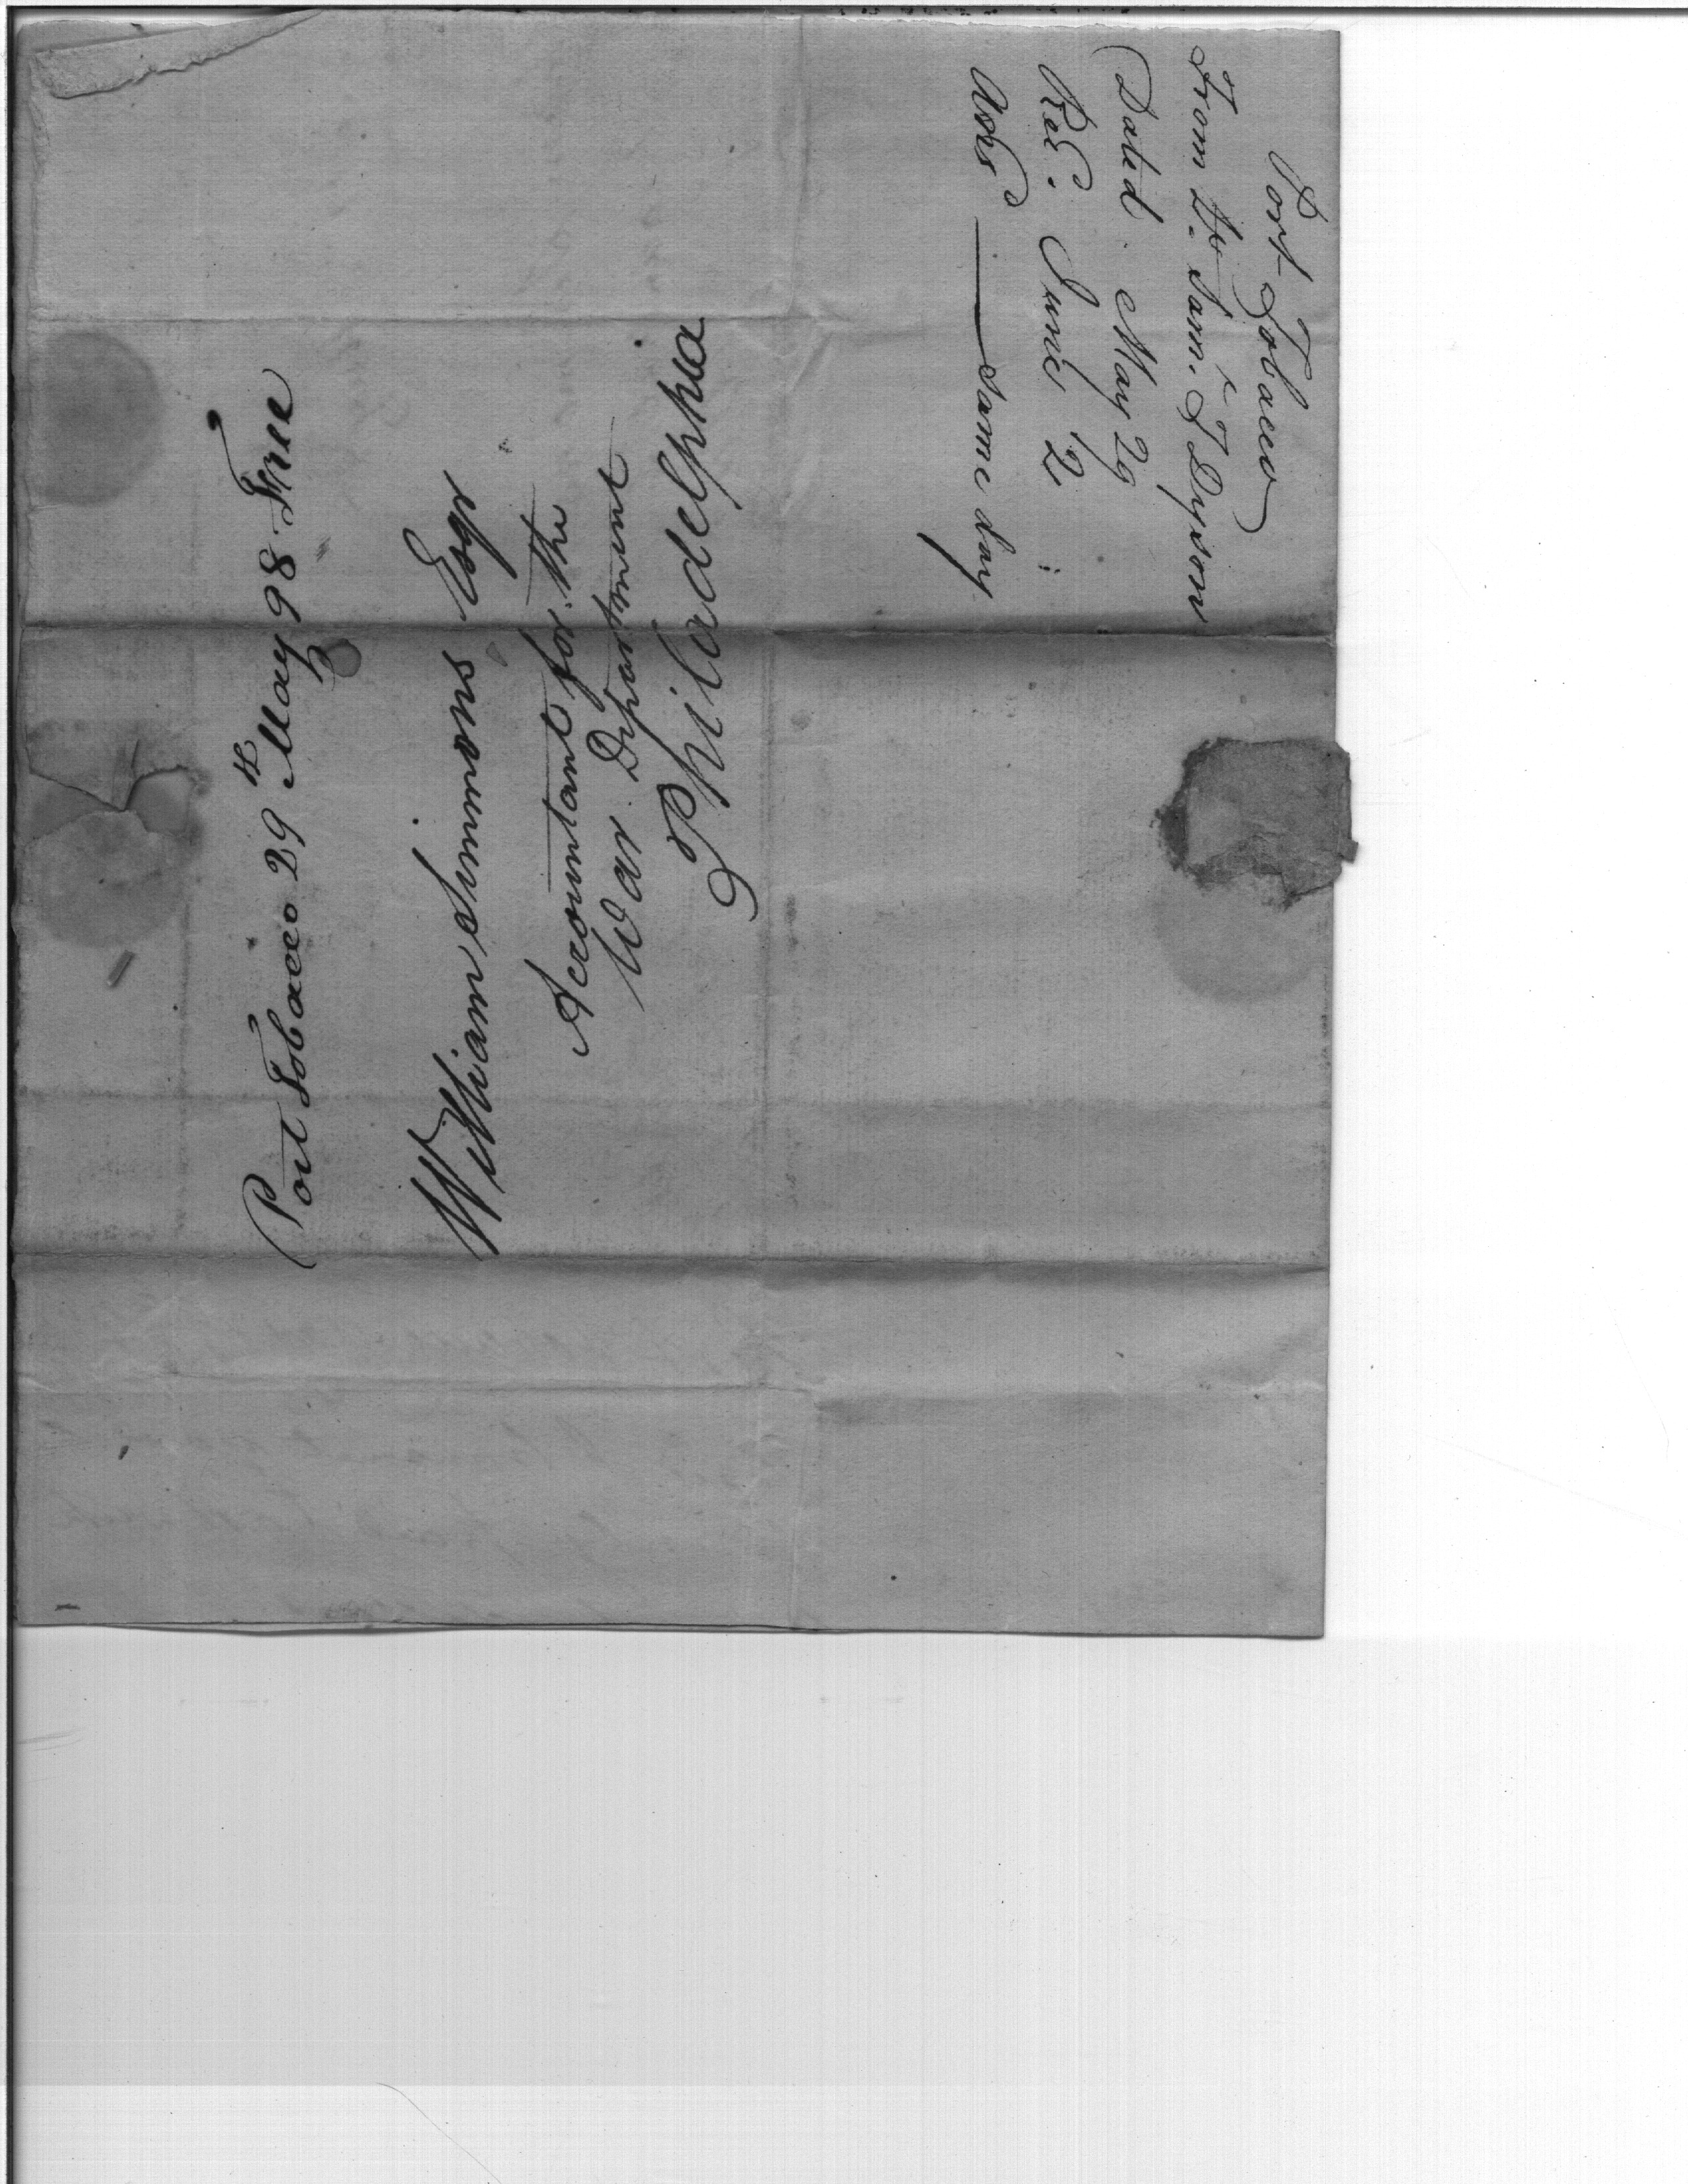 Port Tobacco 29th May 98 Free
William Simmons Esqr
Accountant for the
War Department
Philadelphia
Port Tobacco
From Dr. Saml. J Dyson
Dated. May 29
Recd. June 2
Ansd — same day